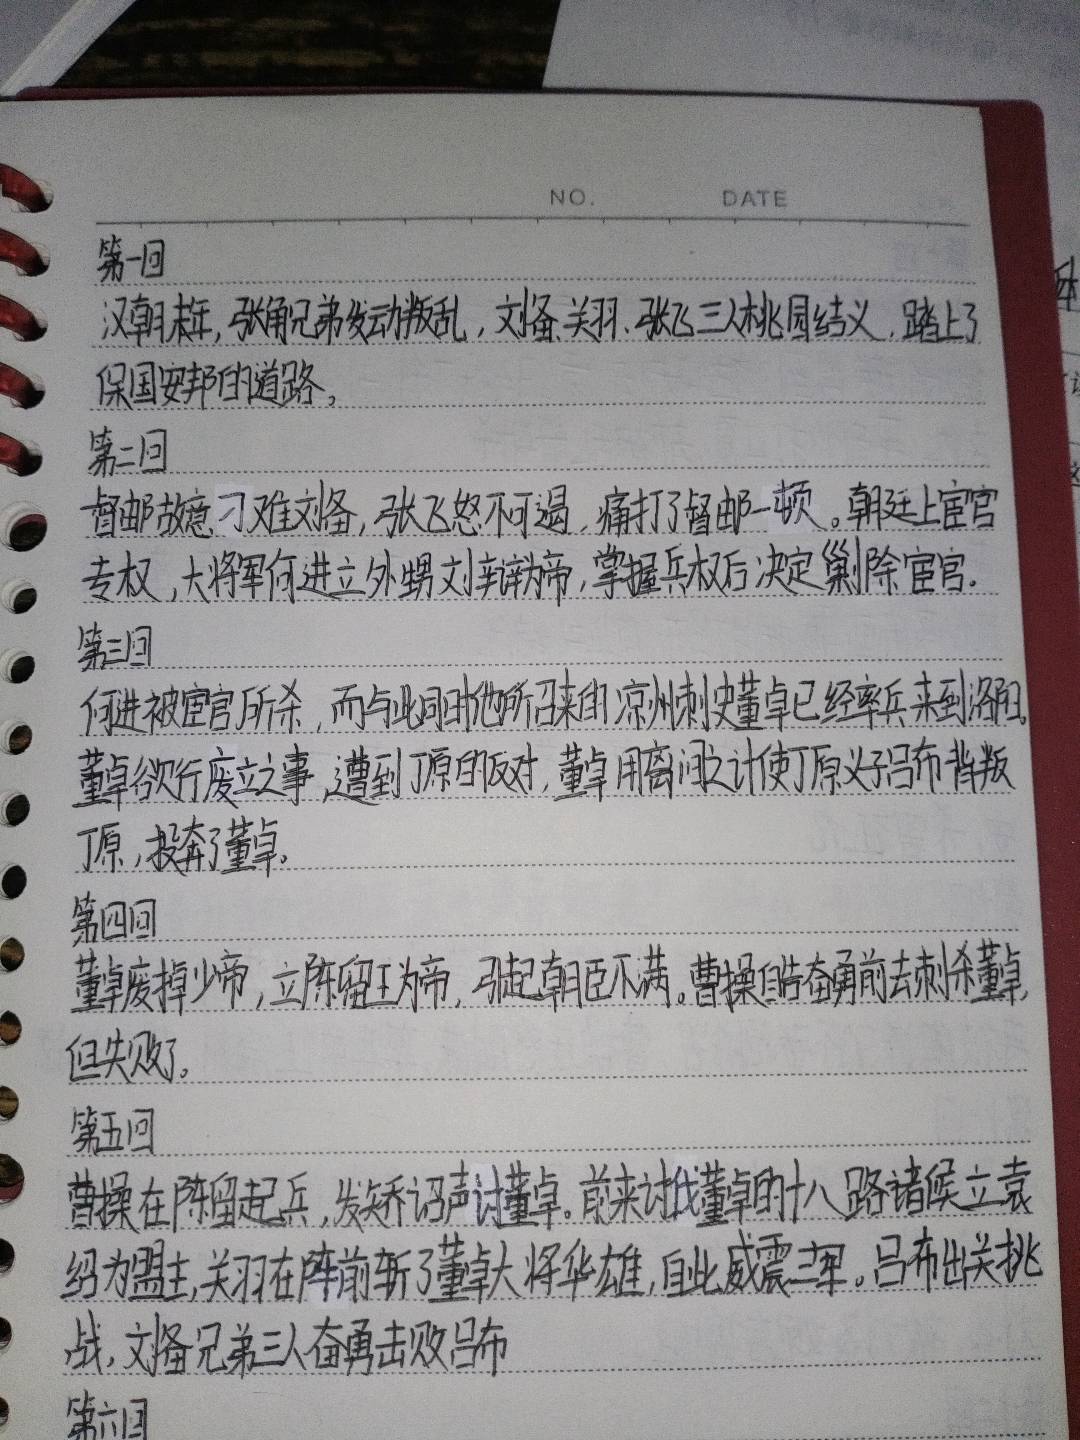 NO. DATE
第一回
汉朝末年,张角兄弟发动叛乱,刘备、关羽、张飞三人桃园结义,踏上了
保国安邦的道路。
第二回
督邮故意刁难刘备,张飞怒不可遏,痛打了督邮一顿。朝廷上宦官
专权,大将军何进立外甥刘辩为帝,掌握兵权后决定剿除宦官.
第三回
何进被宦官所杀,而与此同时他所召来的凉州刺史董卓已经率兵来到洛阳。
董卓欲行废立之事,遭到丁原的反对,董卓用离间之计使丁原义子吕布背叛
丁原,投奔了董卓。
第四回
董卓废掉少帝,立陈留王为帝,引起朝臣不满。曹操自告奋勇前去刺杀董卓,
但失败了。
第五回
曹操在陈留起兵,发矫诏声讨董卓。前来讨伐董卓的十八路诸候立袁
绍为盟主,关羽在阵前斩了董卓大将华雄,自此威震三军。吕布出关挑
战,刘备兄弟三人奋勇击败吕布
第六回